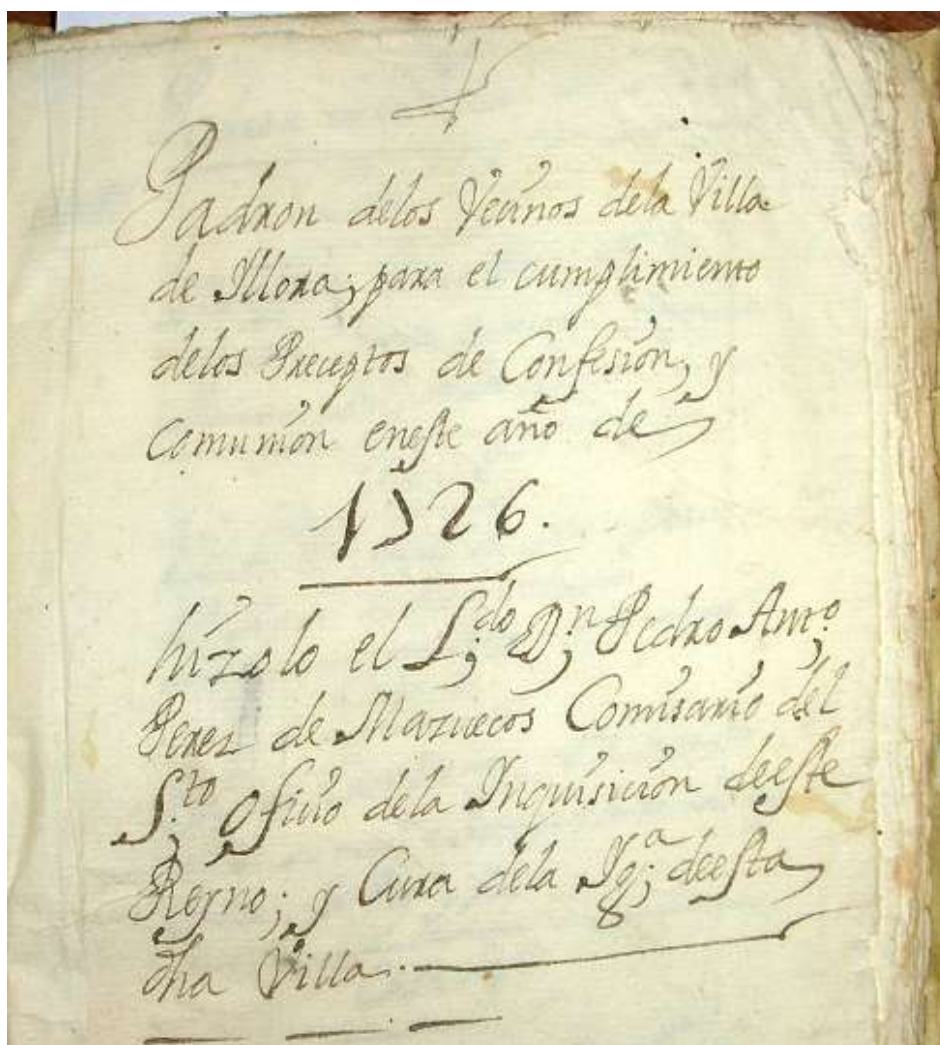 Padron delos Vecinos dela Villa
de Illora; para el cumplimiento
delos Preceptos de Confesion, y
Comunion eneste año de
1726.
hízolo el L.do D.n Pedro Ant.o
Perez de Mazuecos Comisario del
S.to Oficio dela Inquisicion deeste
Reyno; y Cura dela Yg.a deesta
dha Villa.